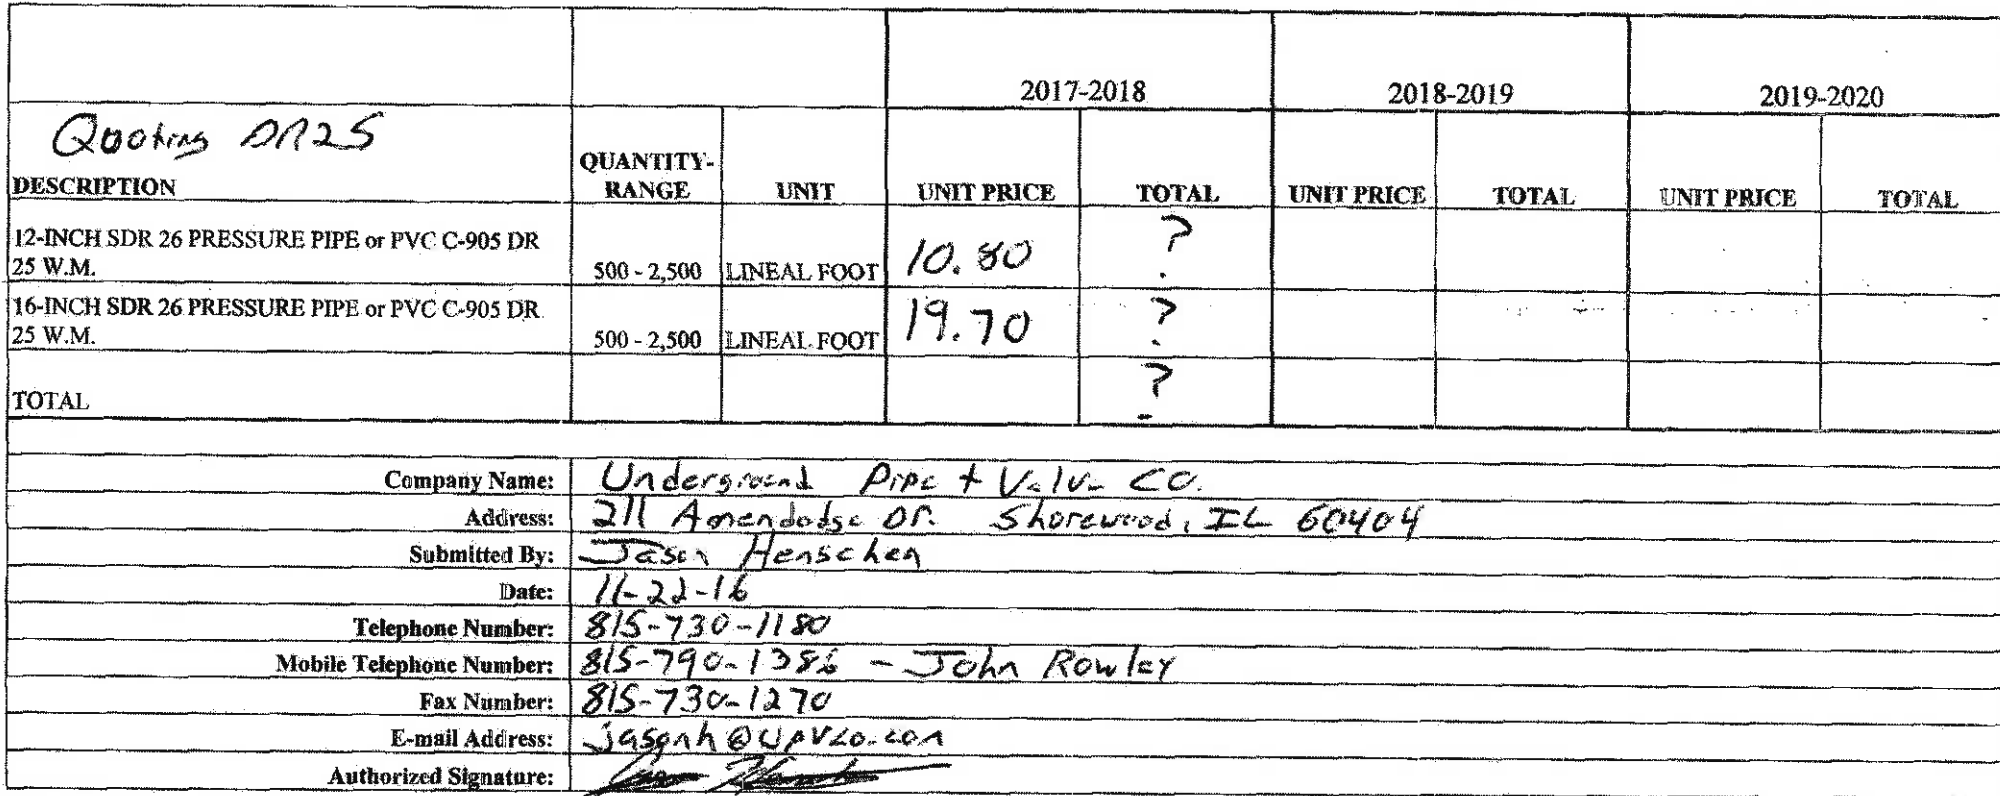 2017-2018 2018-2019 2019-2020
Quoting DR25
DESCRIPTION QUANTITY-RANGE UNIT UNIT PRICE TOTAL UNIT PRICE TOTAL UNIT PRICE TOTAL
12-INCH SDR 26 PRESSURE PIPE or PVC C-905 DR
25 W.M. 500 - 2,500 LINEAL FOOT 10.80 ?
16-INCH SDR 26 PRESSURE PIPE or PVC C-905 DR
25 W.M. 500 - 2,500 LINEAL FOOT 19.70 ?
TOTAL ?
Company Name: Underground Pipe + Valve CO.
Address: 211 Amendodge Dr. Shorewood, IL 60404
Submitted By: Jason Henschen
Date: 11-22-16
Telephone Number: 815-730-1180
Mobile Telephone Number: 815-790-1386 - John Rowley
Fax Number: 815-730-1270
E-mail Address: jasonh@upvco.com
Authorized Signature: